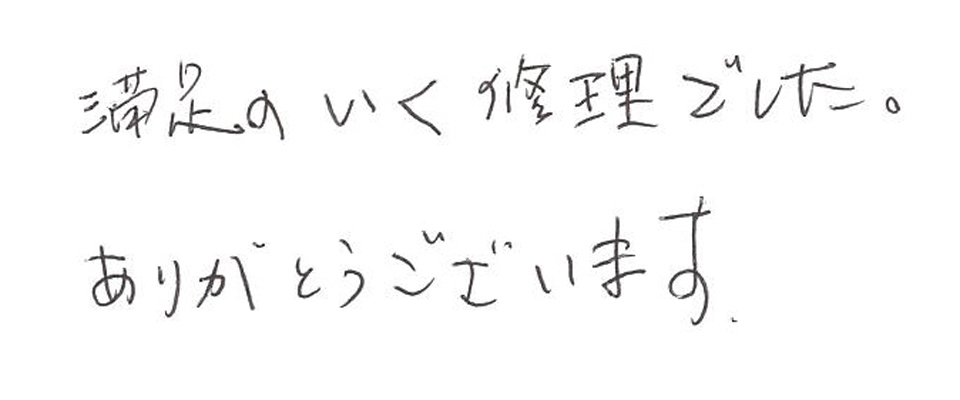 満足のいく修理でした。
ありがとうございます.